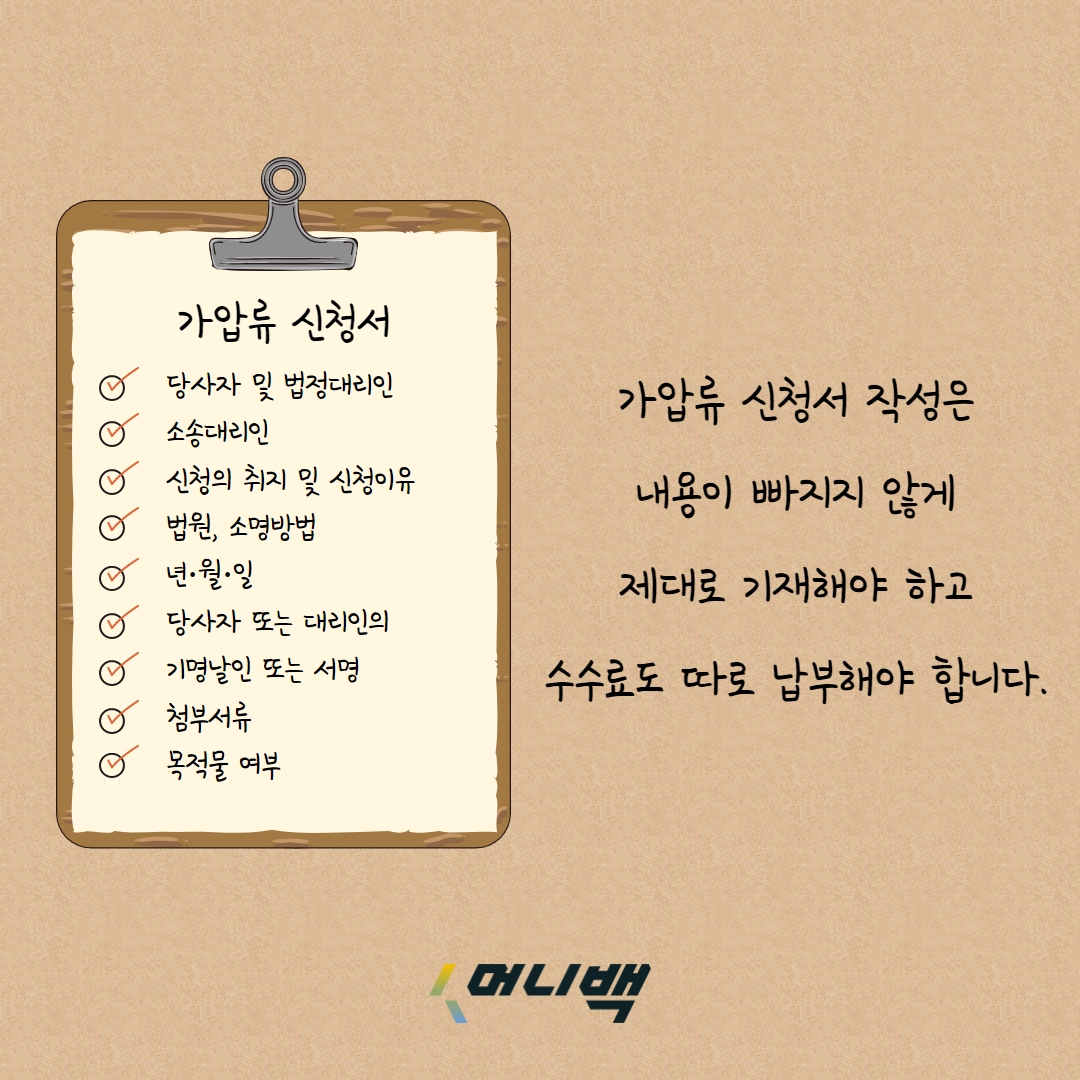 가압류 신청서
당사자 및 법정대리인
소송대리인
신청의 취지 및 신청이유
법원, 소명방법
년·월·일
당사자 또는 대리인의
기명날인 또는 서명
첨부서류
목적물 여부
가압류 신청서 작성은
내용이 빠지지 않게
제대로 기재해야 하고
수수료도 따로 납부해야 합니다.
머니백